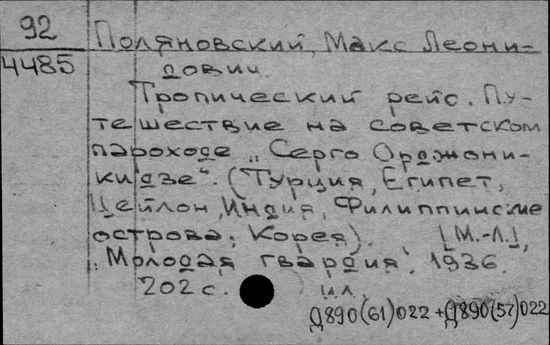 92
4485
Поляновский, Макс Леони-
дович.
Тропический рейс. Пу-
тешествие на советском
пароходе „Серго Орджони-
кидзе“. (Турция, Египет,
Цейлон, Индия, Филиппинские
острова, Корея). [М.-Л.],
„Молодая гвардия", 1936.
202 с. ил.
Д890(61)022 + Д890(57)022